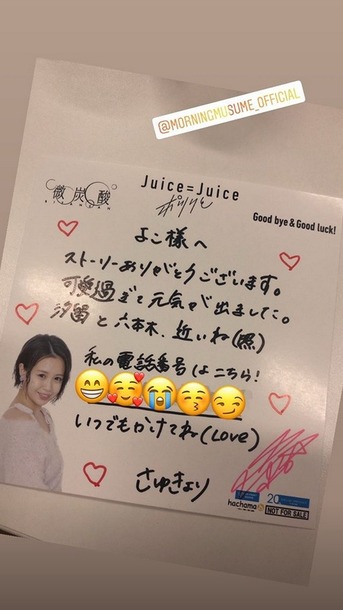 @MORNINGMUSUME_OFFICIAL
微炭酸
Juice=Juice
ポツリと
Good bye & Good luck!
よこ様へ
ストーリーありがとうございます。
可愛過ぎて元気が出ました。
汐留と六本木、近いね(照)
私の電話番号はこちら!
😁🥰😭😚😏
いつでもかけてね(Love)
さゆきより
hachama
20
NOT FOR SALE